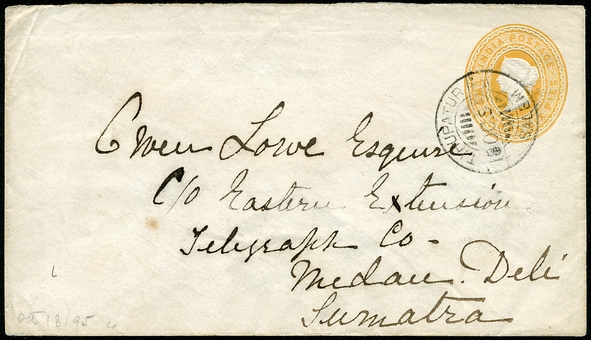 INDIA POSTAGE
TIRUPATUR
SALEM
Owen Lowe Esquire
C/o Eastern Extension
Telegraph Co-
Medan. Deli
Sumatra
Oct 18/95